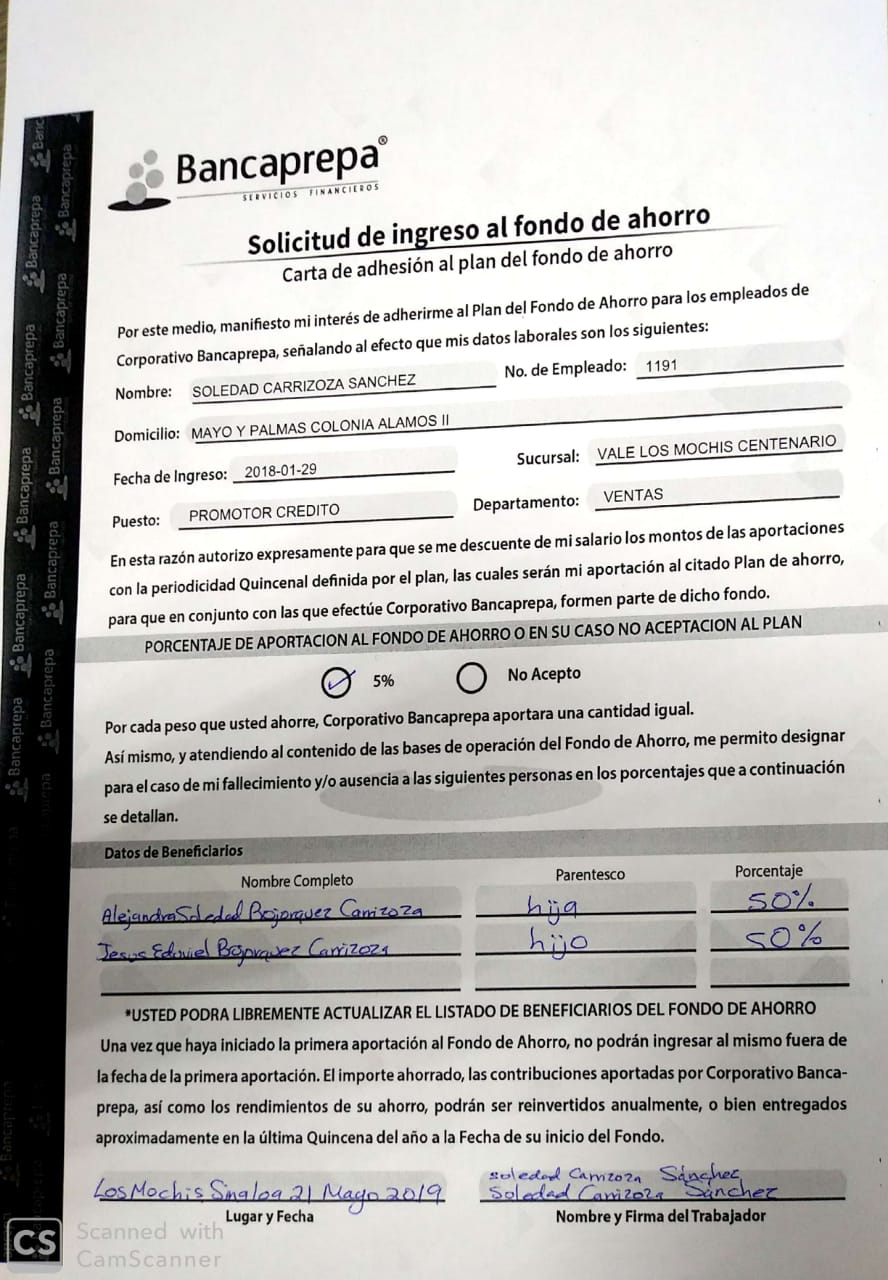 Bancaprepa®
SERVICIOS FINANCIEROS
Solicitud de ingreso al fondo de ahorro
Carta de adhesión al plan del fondo de ahorro
Por este medio, manifiesto mi interés de adherirme al Plan del Fondo de Ahorro para los empleados de
Corporativo Bancaprepa, señalando al efecto que mis datos laborales son los siguientes:
Nombre: SOLEDAD CARRIZOZA SANCHEZ No. de Empleado: 1191
Domicilio: MAYO Y PALMAS COLONIA ALAMOS II
Fecha de Ingreso: 2018-01-29 Sucursal: VALE LOS MOCHIS CENTENARIO
Puesto: PROMOTOR CREDITO Departamento: VENTAS
En esta razón autorizo expresamente para que se me descuente de mi salario los montos de las aportaciones
con la periodicidad Quincenal definida por el plan, las cuales serán mi aportación al citado Plan de ahorro,
para que en conjunto con las que efectúe Corporativo Bancaprepa, formen parte de dicho fondo.
PORCENTAJE DE APORTACION AL FONDO DE AHORRO O EN SU CASO NO ACEPTACION AL PLAN
5% No Acepto
Por cada peso que usted ahorre, Corporativo Bancaprepa aportara una cantidad igual.
Así mismo, y atendiendo al contenido de las bases de operación del Fondo de Ahorro, me permito designar
para el caso de mi fallecimiento y/o ausencia a las siguientes personas en los porcentajes que a continuación
se detallan.
Datos de Beneficiarios
Nombre Completo Parentesco Porcentaje
Alejandra Soledad Bojorquez Carrizoza hija 50%
Jesus Bojorquez Carrizoza hijo 50%
*USTED PODRA LIBREMENTE ACTUALIZAR EL LISTADO DE BENEFICIARIOS DEL FONDO DE AHORRO
Una vez que haya iniciado la primera aportación al Fondo de Ahorro, no podrán ingresar al mismo fuera de
la fecha de la primera aportación. El importe ahorrado, las contribuciones aportadas por Corporativo Banca-
prepa, así como los rendimientos de su ahorro, podrán ser reinvertidos anualmente, o bien entregados
aproximadamente en la última Quincena del año a la Fecha de su inicio del Fondo.
Soledad Carrizoza Sánchez
Los Mochis Sinaloa 21 Mayo 2019 Soledad Carrizoza Sánchez
Lugar y Fecha Nombre y Firma del Trabajador
CS Scanned with
CamScanner